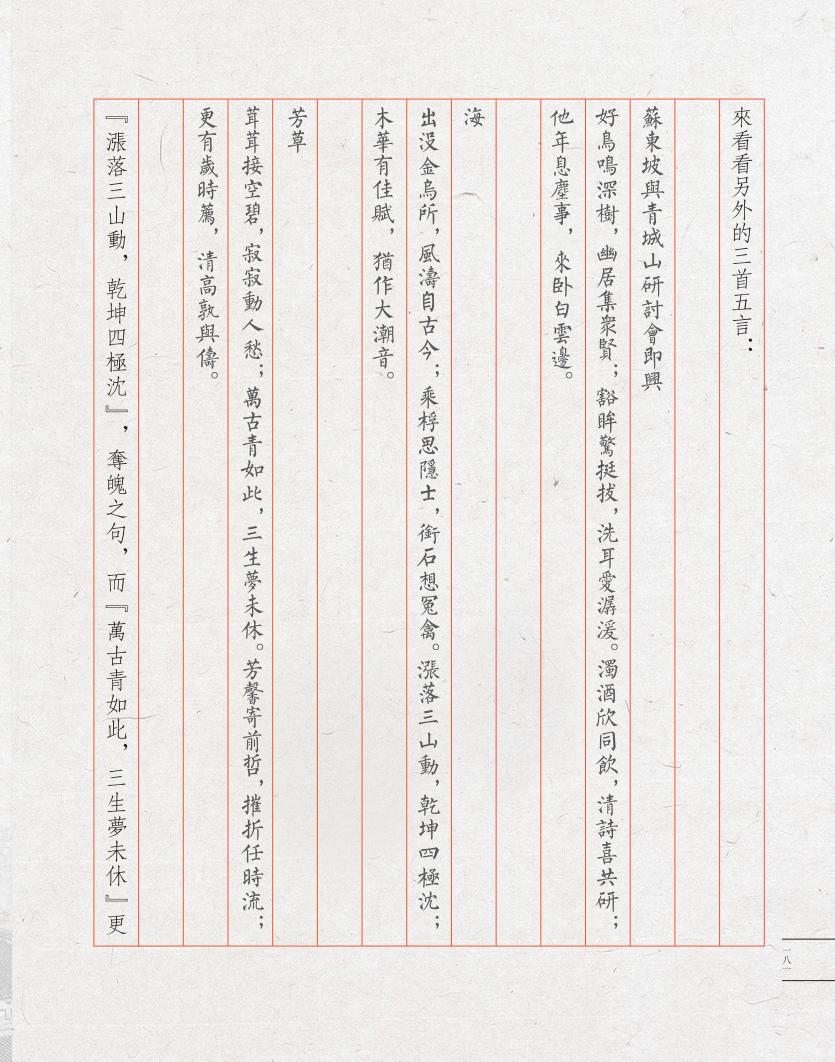 來看看另外的三首五言：
蘇東坡與青城山研討會即興
好鳥鳴深樹，幽居集衆賢；豁眸驚挺拔，洗耳愛潺湲。濁酒欣同飲，清詩喜共研；
他年息塵事，來卧白雲邊。
海
出没金烏所，風濤自古今；乘桴思隱士，銜石想冤禽。漲落三山動，乾坤四極沈；
木華有佳賦，猶作大潮音。
芳草
茸茸接空碧，寂寂動人愁；萬古青如此，三生夢未休。芳馨寄前哲，摧折任時流；
更有歲時薦，清高孰與儔。
『漲落三山動，乾坤四極沈』，奪魄之句，而『萬古青如此，三生夢未休』更
一八一